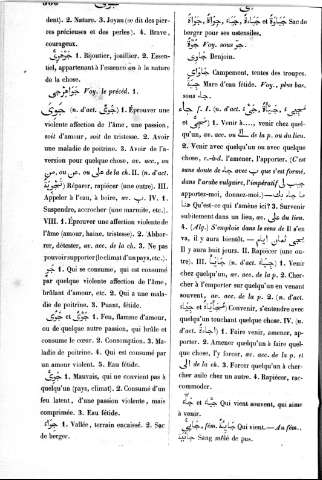 dent). 2. Nature. 3. Joyau (se dit des pier-
res précieuses et des perles). 4. Brave,
courageux.
جَوْهَرِيّ 1. Bijoutier, joaillier. 2. Essen-
tiel, appartenant à l'essence ou à la nature
de la chose.
جَوَاهِرْجِي Voy. le précéd. 1.
جَوِىَ (n. d'act. جَوًى) 1. Éprouver une
violente affection de l'âme, une passion,
soit d'amour, soit de tristesse. 2. Avoir
une maladie de poitrine. 3. Avoir de l'a-
version pour quelque chose, av. acc., ou
de la ch. II. (n. d'act.
Réparer, rapiécer (une outre). III.
Appeler à l'eau, à boire, av. ب. IV. 1.
Suspendre, accrocher (une marmite, etc.).
VIII. 1. Éprouver une affection violente de
l'âme (amour, haine, tristesse). 2. Abhor-
rer, détester, av. acc. de la ch. 3. Ne pas
pouvoir supporter (le climat d'un pays, etc.).
جَوٍ 1. Qui se consume, qui est consumé
par quelque violente affection de l'âme,
brûlant d'amour, etc. 2. Qui a une mala-
die de poitrine. 3. Puant, fétide.
جَوًى 1. Feu, flamme d'amour,
ou de quelque autre passion, qui brûle et
consume le cœur. 2. Consomption. 3. Ma-
ladie de poitrine. 4. Qui est consumé par
un amour violent. 5. Eau fétide.
1. Mauvais, qui ne convient pas à
quelqu'un (pays, climat). 2. Consumé d'un
feu latent, d'une passion violente, mais
comprimée. 3. Eau fétide.
جِوَاء 1. Vallée, terrain encaissé. 2. Sac
de berger.
Sac de
berger pour ses ustensiles.
Voy. sous
جاوى Benjoin.
Campement, tentes des troupes.
Mare d'eau fétide. Voy. plus bas,
sous جاء.
جاء f. I. (n. d'act.
) 1. Venir à...., venir chez quel-
qu'un, av. acc. ou الى de la p. ou du lieu.
2. Venir avec quelqu'un ou avec quelque
chose, c.-à-d. l'amener, l'apporter. (C'est
sans doute de جاء avec ب que s'est formé,
dans l'arabe vulgaire, l'impératif جيب لي
apportez-moi, donnez-moi). — ما جاء بك
Qu'est-ce qui t'amène ici? 3. Survenir
subitement dans un lieu, av. على du lieu.
4. (Alg.) S'emploie dans le sens de Il s'en
va, il y aura bientôt.
Il y aura huit jours. II. Rapiécer (une ou-
tre). III. (n. d'act. ) 1. Venir
chez quelqu'un, av. acc. de la p. 2. Cher-
cher à l'emporter sur quelqu'un en venant
souvent, av. acc. de la p. 2. (n. d'act.
Convenir, s'entendre avec
quelqu'un touchant quelque chose. IV. (n.
d'act. إجاءة) 1. Faire venir, amener, ap-
porter. 2. Amener quelqu'un à faire quel-
que chose, l'y forcer, av. acc. de la p. et
الى de la ch. 3. Forcer quelqu'un à cher-
cher asile chez un autre. 4. Rapiécer, rac-
commoder.
Qui vient souvent, qui aime
à venir.
fém. جائية Qui vient. — Au fém.,
Sang mêlé de pus.